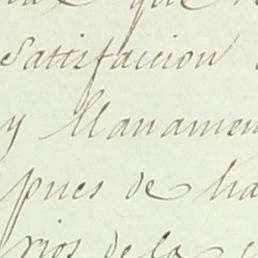 que
Satisfaccion
y llanamen
pues de ha
rios de la